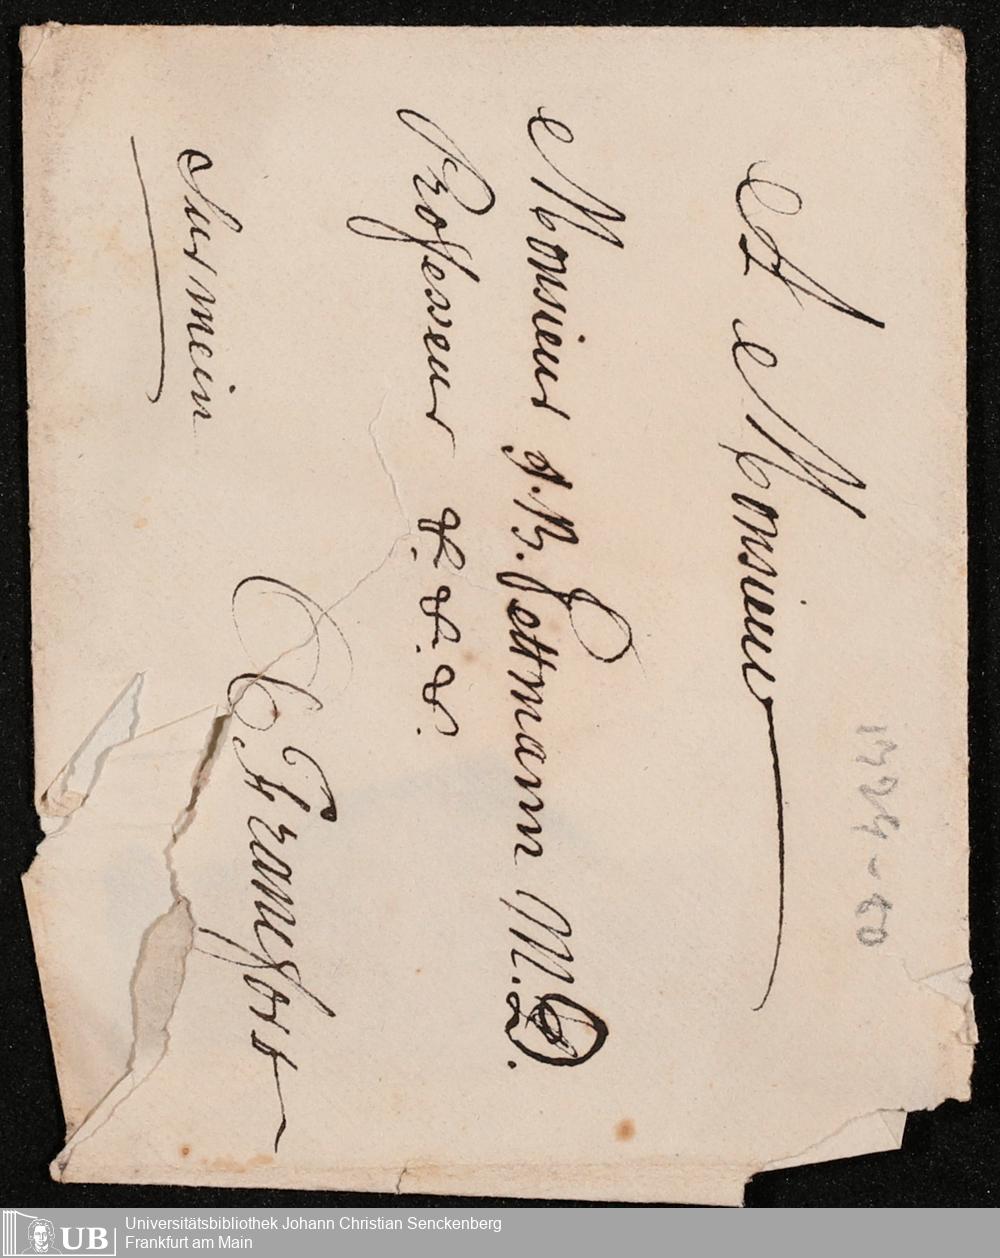 A Monsieur
Monsieur A. B. Zettmann M. D.
Professeur &. &. &.
à Francfort
sur mein
1784-80
Universitätsbibliothek Johann Christian Senckenberg
Frankfurt am Main
UB